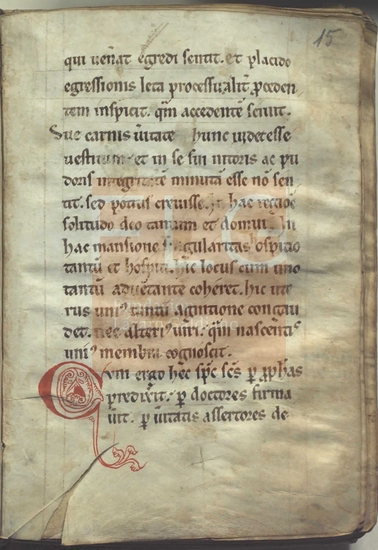 15
qui ven̄at egredi sentit. et placido
egressionis leta processu. alit̄
tem inspicit. qm̄ accedentē sciuit.
Sue carnis ūitate hunc uidet esse
uestitum. et in se sui nitoris ac pu
doris integritatē minutā esse nō sen
tit. sed potius creuisse. In hac regiōe
solitudo deo tantum et domui. In
hac mansione singularitas ospicio
tantū et hospiti. hic locus cum uno
tantū aduentante coheret. hic ute
rus uniꝰ tantū agnitione congau
det. nec alteriꝰ uiri. qm̄ nascentis
uniꝰ membra cognoscit.
Cum ergo hec sp̄c sc̄s ꝑ ꝓph̄as
p̄dixit. ꝑ doctores firma
uit. ꝑ ūitatis assertores de